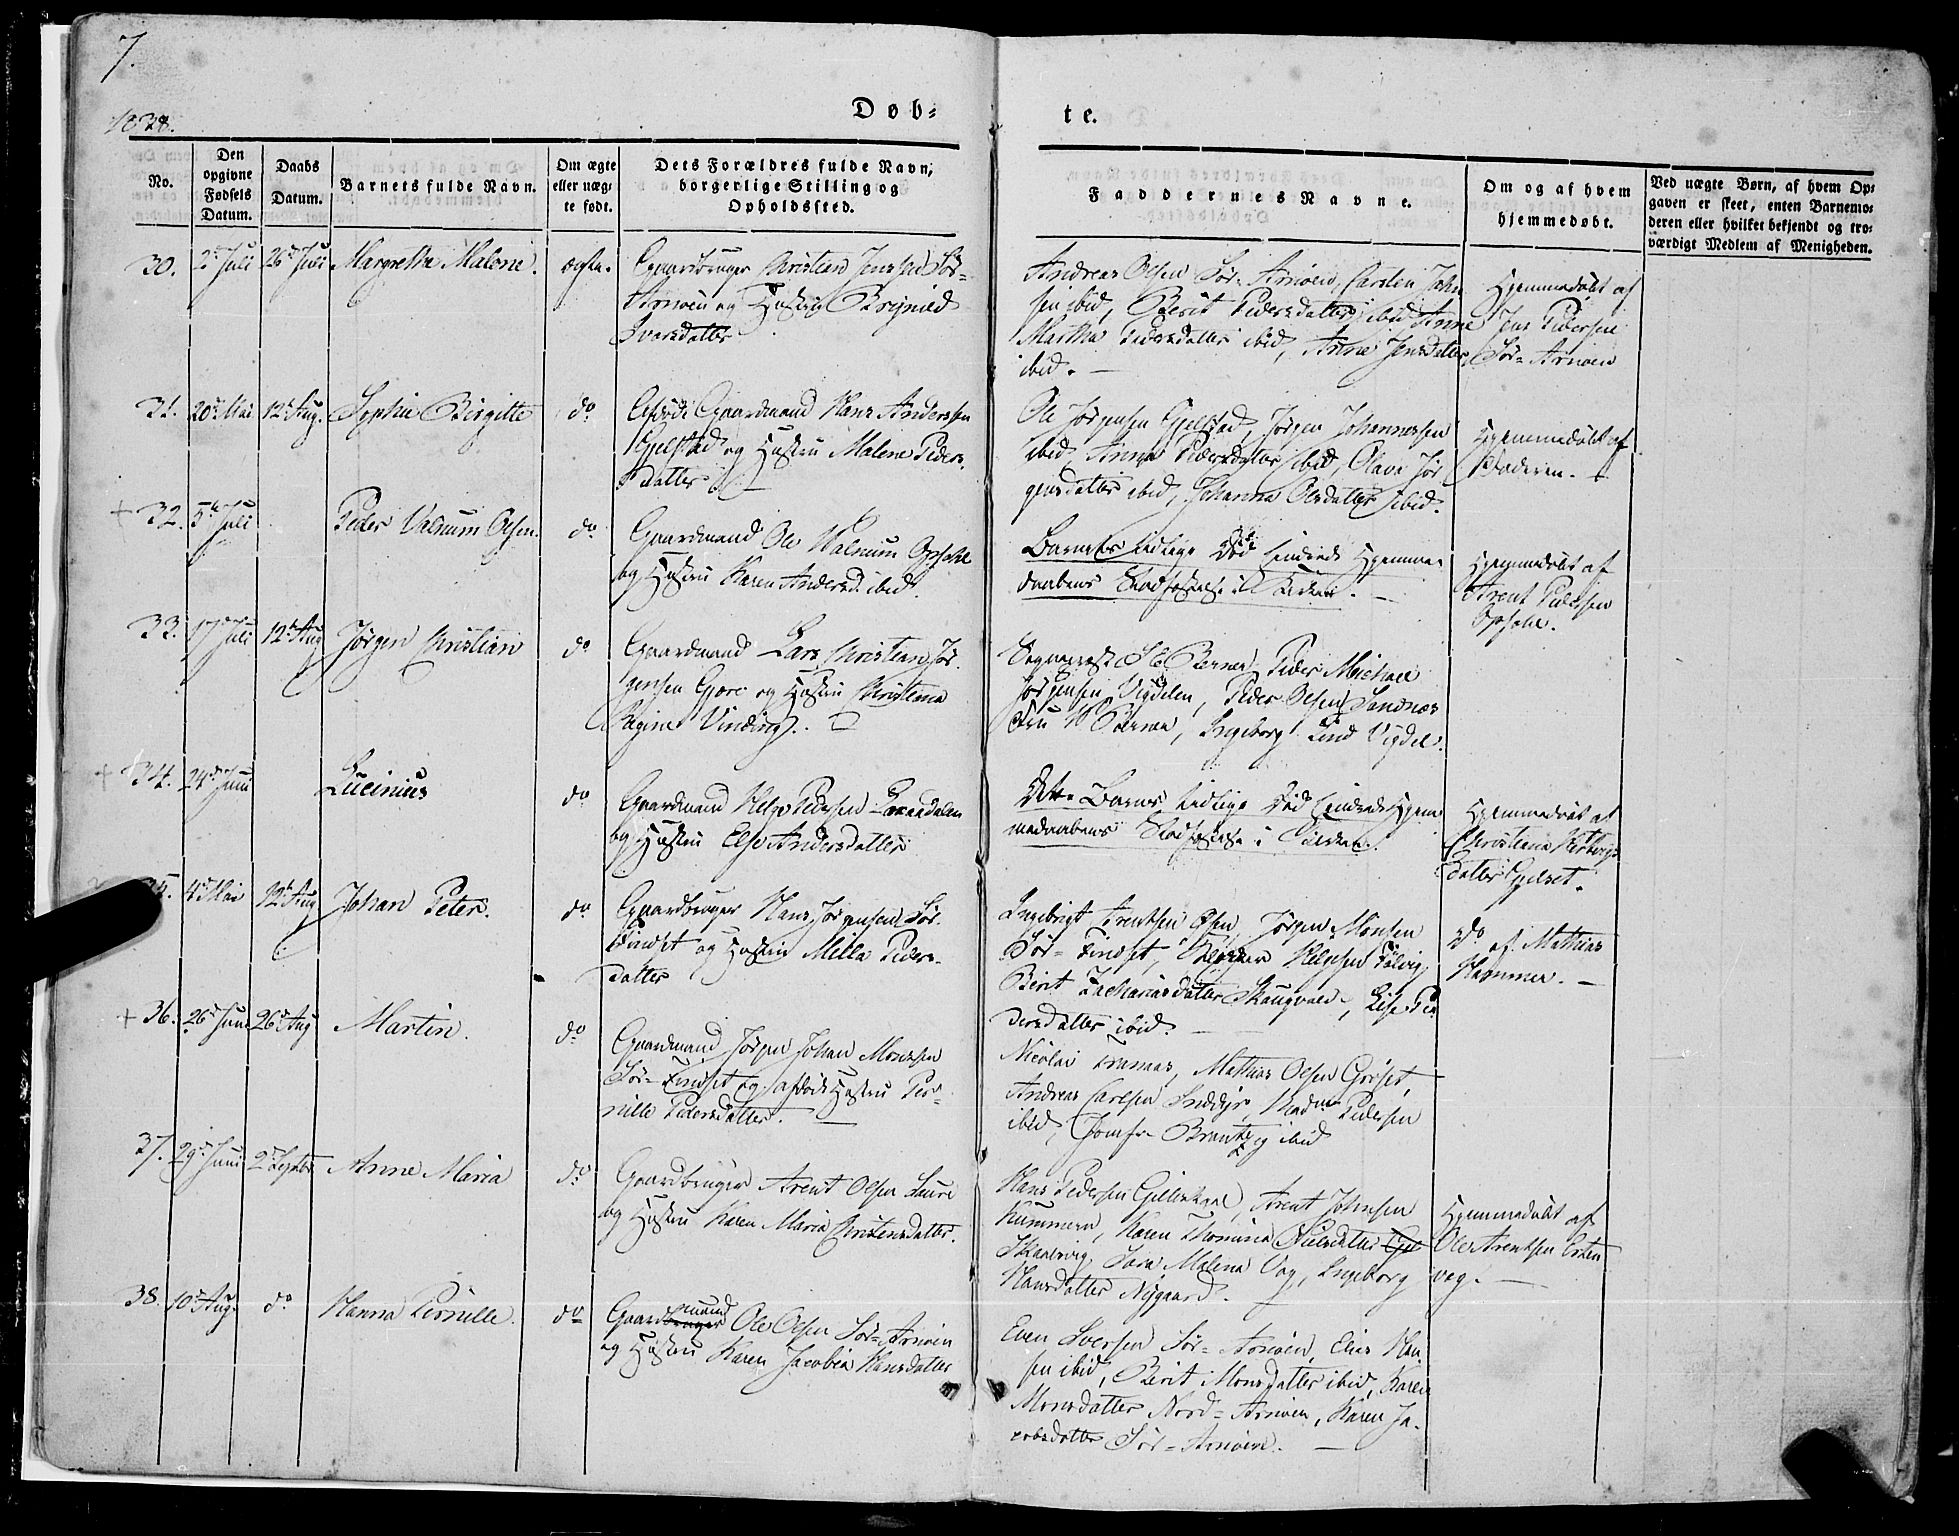 7.
1838.
Døb=
te.
No.
Den opgivne Fødsels Datum.
Daabs Datum.
Barnets fulde Navn.
Om ægte eller uæg= te født.
Dets Forældres fulde Navn, borgerlige Stilling og Opholdssted.
Faddernes Navne.
Om og af hvem hjemmedøbt.
Ved uægte Børn, af hvem Op= gaven er skeet, enten Barnemo= deren eller hvilket bekjendt og tro= værdigt Medlem af Menigheden.
30. 2d Juli 26d Juli Margretha Malene. ægte.
Gaardbruger Christian Jensen Sør=
Arnøen og Hustru Brynild
Ivarsdatter
Andreas Olsen Sør=Arnøen, Carsten John
sen ibid, Berit Pedersdatter ibid Anne
Martha Pedersdatter ibid, Anne Jensdatter
ibid. —
Hjemmedøbt af
Jens Pedersen
Sør=Arnøen
31. 20d Mai 12t Aug. Sophie Birgitte do
Gaardmand Hans Anderssen
Gjelstad og Hustru Malene Peders
Datter
Ole Jørgensen Gjelstad, Jørgen Johannessen
ibid, Anna Pedersdatter ibid, Olava Jør
gensdatter ibid, Johanna Olsdatter ibid.
Hjemmedøbt af
Faderen. —
+ 32. 5t Juli Peder Valnum Olsen. do
Gaardmand Ole Walnum Opsahl
og Hustru Karen Andersd. ibid.
Barnets tidlige Død hindrede Hjemme=
daabens Stadfæstelse i Kirken. —
Hjemmedøbt af
Arent Pedersen
Opsahl.
33. 17d Juli 12t Aug Jørgen Christian do
Gaardmand Lars Christian Jør
gensen Gjøre og Hustru Christema
Regine Vinding.
Sognepræst Berner, Peder Michael
Jørgensen Vigdelen, Peder Olsen Sandnæs
Fru Berner, Ingeborg Lind Vigdel.
+ 34. 24d Juni Lucinius do
Gaardmand Helge Pedersen
og Hustru Else Andersdatter
Dette Barns tidlige Død hindrede Hjem
medaabens Stadfæstelse i Kirken.
Hjemmedøbt af
Christiana
datter Gjelset.
35. 4d Mai 12t Aug Johan Peter. do
Gaardbruger Hans Jørgensen Sør
Findset og Hustru Milla Peders=
datter
Ingebrigt Arentsen Øsen, Jørgen Monsen
Sør=Findset, Helgesen
Berit Zachariasdatter Skaugvold, Else Pe
dersdatter ibid.
do
af Mathias
Hammer. —
+ 36. 26d Juni 26d Aug Martin. do
Gaardmand Jørgen Johan Monsen
Sør=Findset og afdøde Hustru Per=
nille Pedersdatter. —
Nicolai, Mathias Olsen Grøset,
Andreas Carlsen Inddyr, Mad. Pedersen
ibid, Jomfr. Brantzeg ibid
37. 29d Juni 2d Septbr Anne Maria do
Gaardbruger Arent Olsen
og Hustru Karen Maria Christensdatter.
Hans Pedersen, Arent Johnsen
Kummern, Karen Thomina Nielsdatter
Skaalsvig, Sara Malena Vaag, Ingeborg
Hansdatter Nygaard. —
Hjemmedøbt af
Ole Arentsen Esten
vog. —
38. 10d Aug. do Hanna Pernille. do
Gaardmand Ole Olsen Sør=Arnøen
og Hustru Karen Jacobia Hansdatter
Even Iversen Sør=Arnøen, Elias Han
sen ibid, Berit Monsdatter ibid, Karen
Monsdatter Nord=Arnøen, Karen Ja=
cobsdatter Sør=Arnøen. —